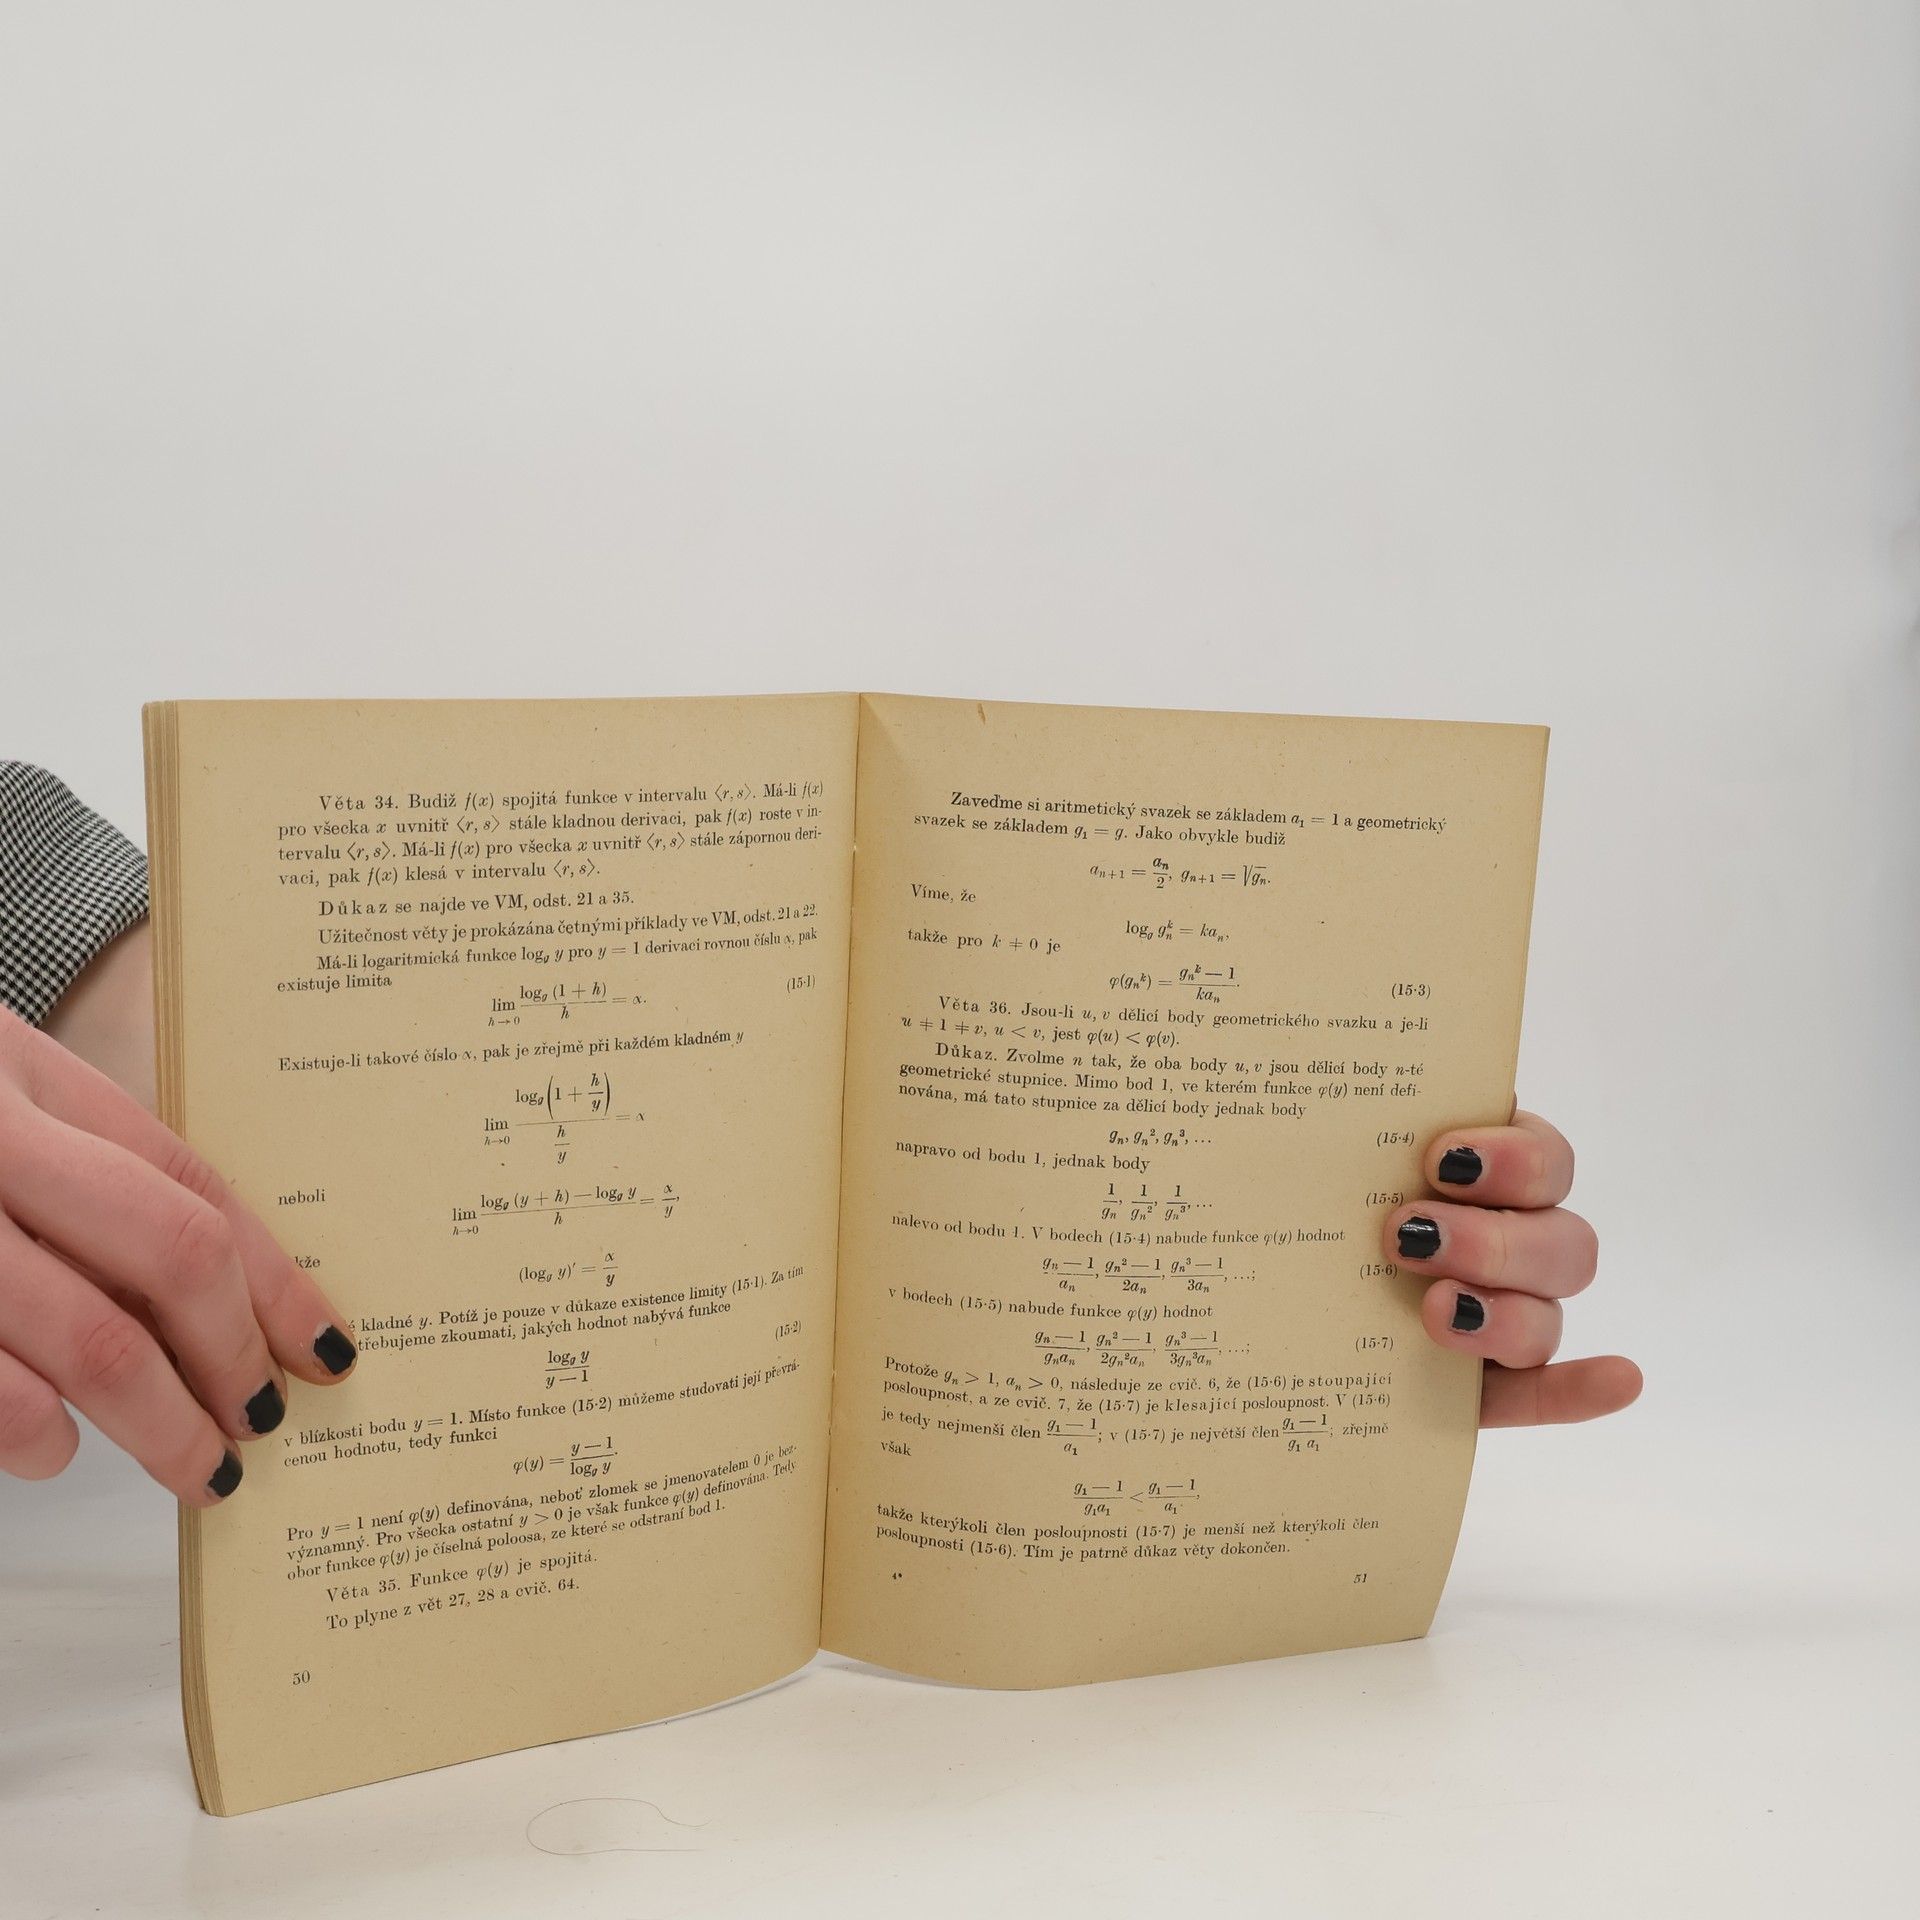 Věta 34. Budiž f(x) spojitá funkce v intervalu ⟨r, s⟩. Má-li f(x)
pro všecka x uvnitř ⟨r, s⟩ stále kladnou derivaci, pak f(x) roste v in-
tervalu ⟨r, s⟩. Má-li f(x) pro všecka x uvnitř ⟨r, s⟩ stále zápornou deri-
vaci, pak f(x) klesá v intervalu ⟨r, s⟩.
Důkaz se najde ve VM, odst. 21 a 35.
Užitečnost věty je prokázána četnými příklady ve VM, odst. 21 a 22.
Má-li logaritmická funkce log_g y pro y = 1 derivaci rovnou číslu α, pak
existuje limita
lim_{h→0} log_g (1 + h) / h = α. (15·1)
Existuje-li takové číslo α, pak je zřejmě při každém kladném y
lim_{h→0} log_g (1 + h/y) / (h/y) = α
neboli
lim_{h→0} (log_g (y + h) — log_g y) / h = α/y,
kže
(log_g y)′ = α/y
é kladné y. Potíž je pouze v důkaze existence limity (15·1). Za tím
třebujeme zkoumati, jakých hodnot nabývá funkce
log_g y / (y — 1) (15·2)
v blízkosti bodu y = 1. Místo funkce (15·2) můžeme studovati její převrá-
cenou hodnotu, tedy funkci
φ(y) = (y — 1) / log_g y.
Pro y = 1 není φ(y) definována, neboť zlomek se jmenovatelem 0 je bez-
významný. Pro všecka ostatní y > 0 je však funkce φ(y) definována. Tedy
obor funkce φ(y) je číselná poloosa, ze které se odstraní bod 1.
Věta 35. Funkce φ(y) je spojitá.
To plyne z vět 27, 28 a cvič. 64.
50
Zaveďme si aritmetický svazek se základem a₁ = 1 a geometrický
svazek se základem g₁ = g. Jako obvykle budiž
a_{n+1} = a_n/2, g_{n+1} = √g_n.
Víme, že
log_g g_n^k = ka_n,
takže pro k ≠ 0 je
φ(g_n^k) = (g_n^k — 1) / ka_n. (15·3)
Věta 36. Jsou-li u, v dělicí body geometrického svazku a je-li
u ≠ 1 ≠ v, u < v, jest φ(u) < φ(v).
Důkaz. Zvolme n tak, že oba body u, v jsou dělicí body n-té
geometrické stupnice. Mimo bod 1, ve kterém funkce φ(y) není defi-
nována, má tato stupnice za dělicí body jednak body
g_n, g_n², g_n³, … (15·4)
napravo od bodu 1, jednak body
1/g_n, 1/g_n², 1/g_n³, … (15·5)
nalevo od bodu 1. V bodech (15·4) nabude funkce φ(y) hodnot
(g_n — 1)/a_n, (g_n² — 1)/2a_n, (g_n³ — 1)/3a_n, …; (15·6)
v bodech (15·5) nabude funkce φ(y) hodnot
(g_n — 1)/g_n a_n, (g_n² — 1)/2g_n² a_n, (g_n³ — 1)/3g_n³ a_n, …; (15·7)
Protože g_n > 1, a_n > 0, následuje ze cvič. 6, že (15·6) je stoupající
posloupnost, a ze cvič. 7, že (15·7) je klesající posloupnost. V (15·6)
je tedy nejmenší člen (g₁ — 1)/a₁; v (15·7) je největší člen (g₁ — 1)/g₁ a₁; zřejmě
však
(g₁ — 1)/g₁a₁ < (g₁ — 1)/a₁,
takže kterýkoli člen posloupnosti (15·7) je menší než kterýkoli člen
posloupnosti (15·6). Tím je patrně důkaz věty dokončen.
4*
51